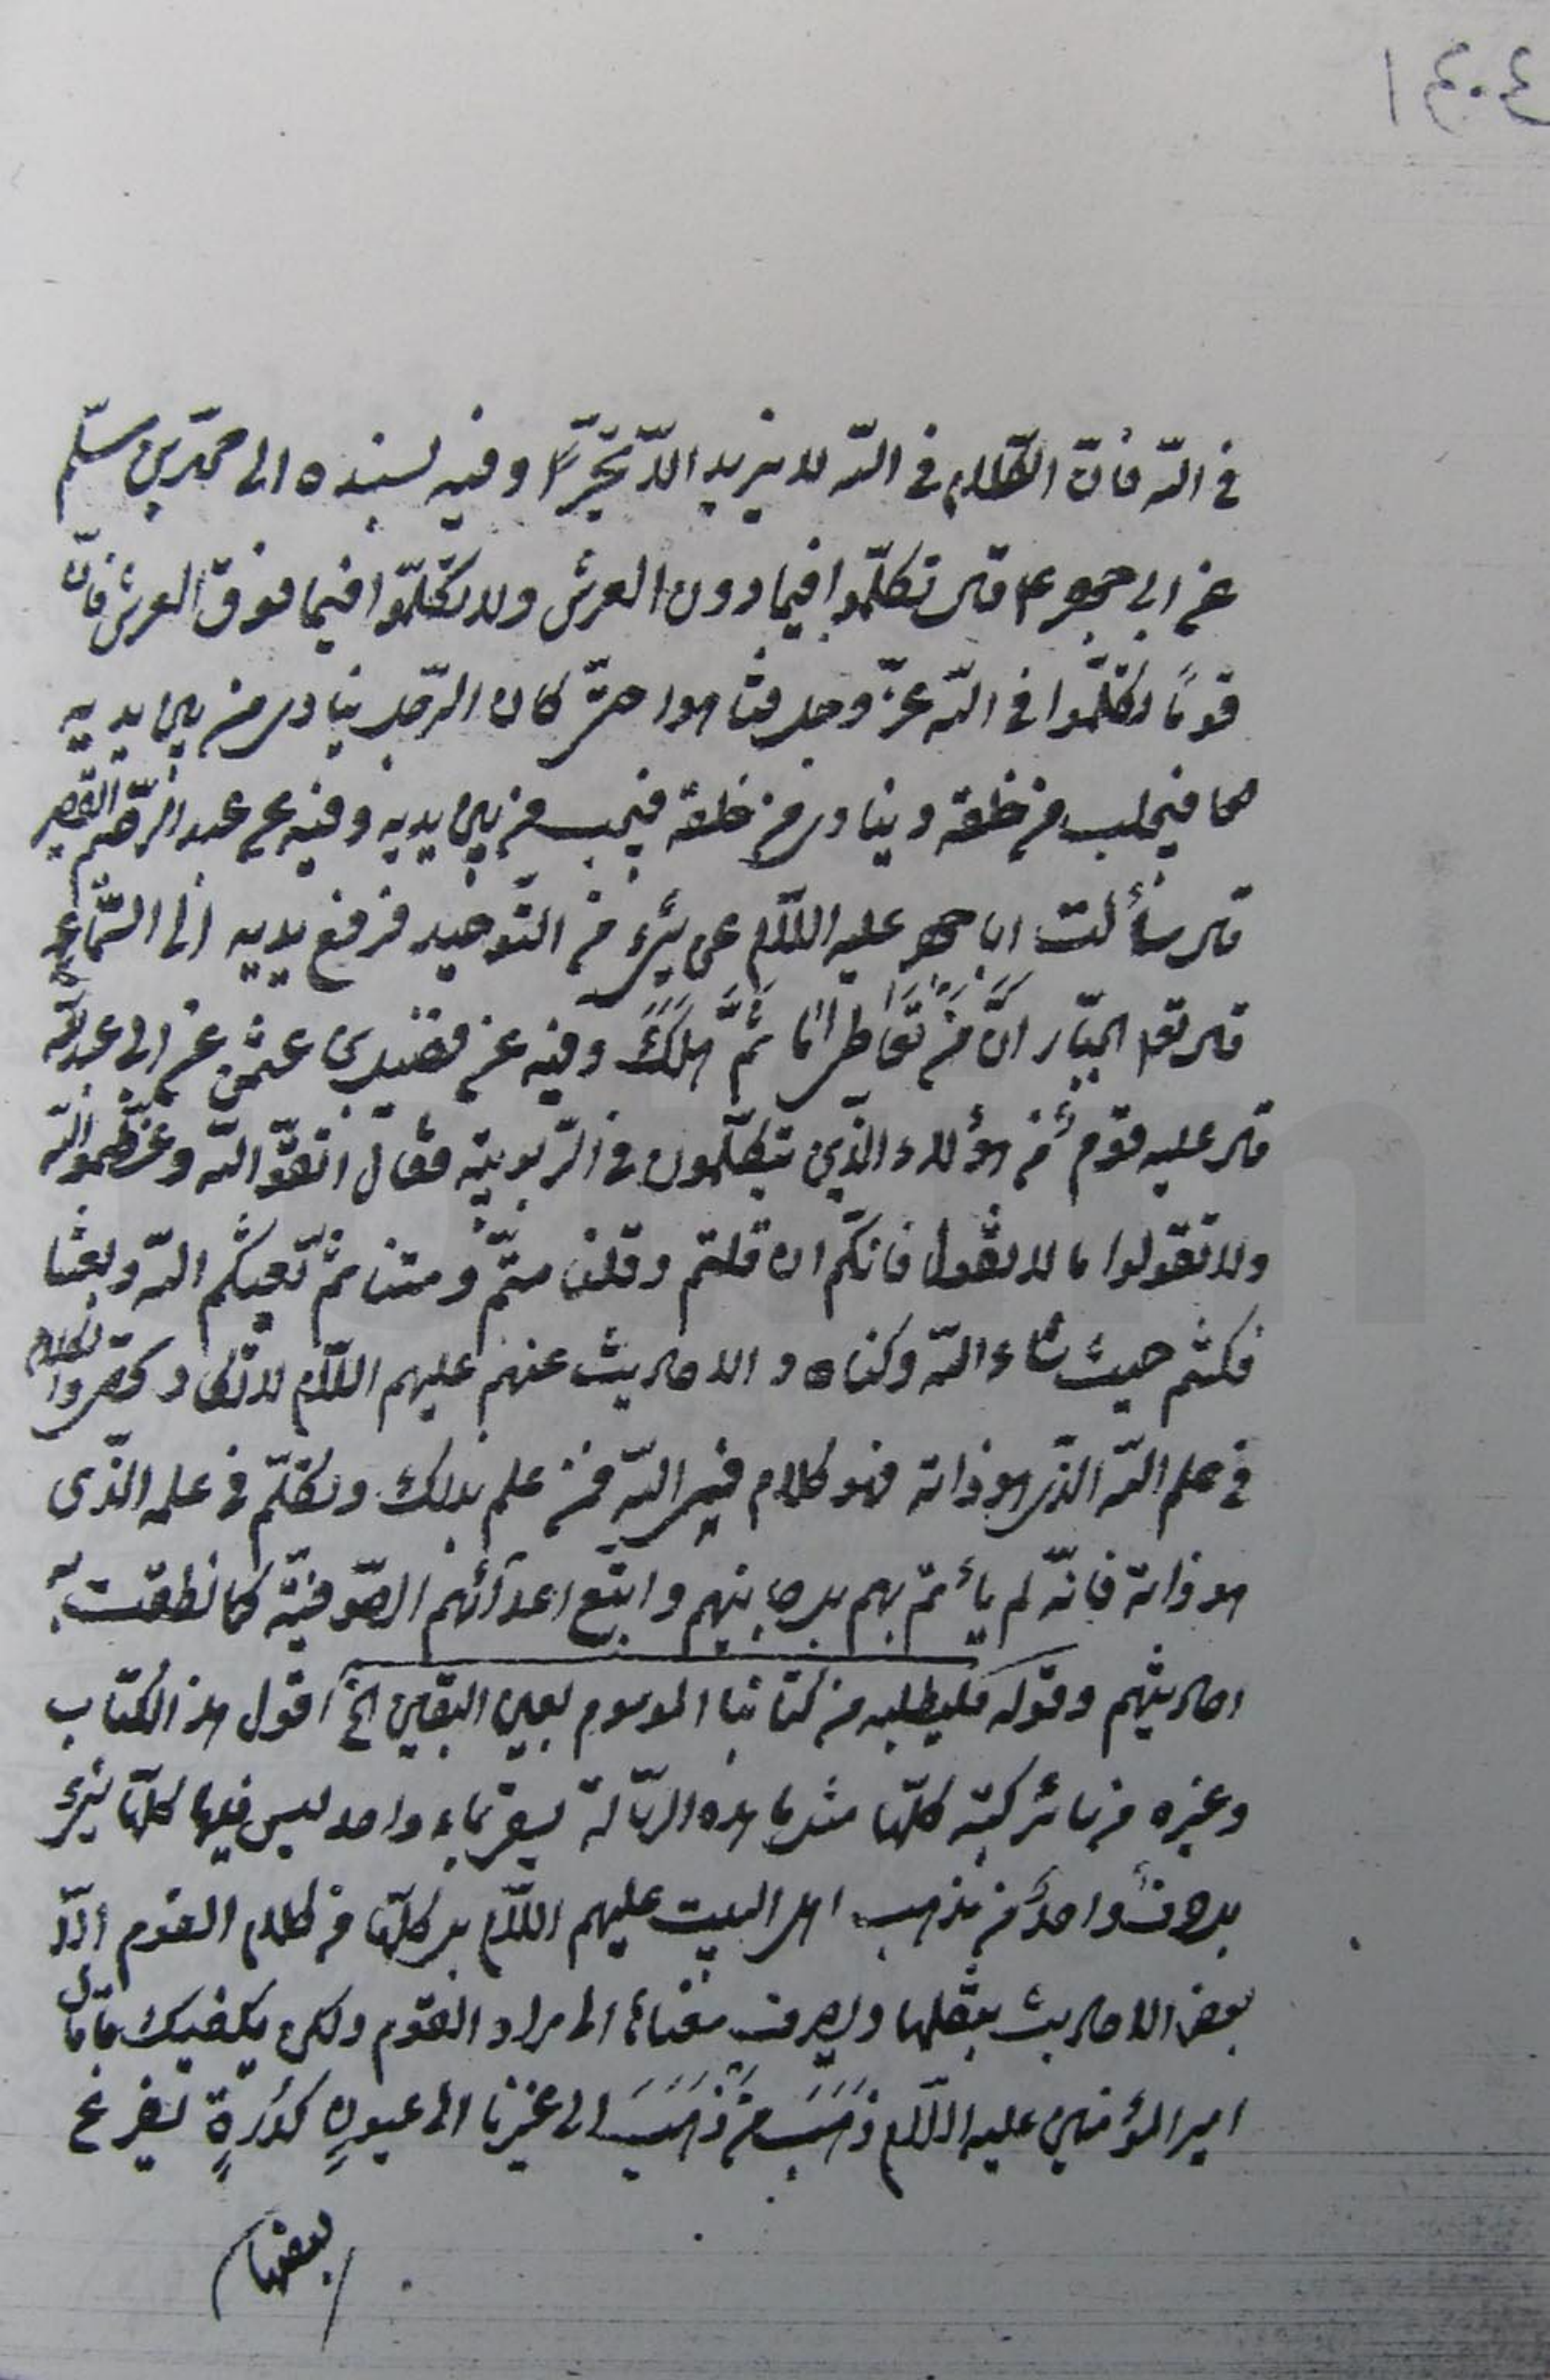 ١٤٠٤
في الله فأنّ الكلام في الله لا يزيد الّا تحيّراً وفيه بسنده الى محمّد بن مسلم
عن ابي جعفر ع قال تكلّموا فيما دون العرش ولا تكلّموا فيما فوق العرش فانّ
قوماً تكلّموا في الله عزّ وجل فتاهوا حتّى كان الرّجل ينادى من بين يديه
فيجيب من خلفه وينادى من خلفه فيجيب من بين يديه وفيه عن عبد الرّحيم القصير
قال سألت ابا جعفر عليه السّلام عن شئ من التّوحيد فرفع يديه الى السّماء
قال تعالى الجبّار انّ مَن تعاطى ما ثَمَّ هَلَكَ وفيه عن فضيل بن عثمن عن ابي عبد الله ع
قال دخل عليه قوم من هؤلاء الّذين يتكلّمون في الرّبوبيّة فقال اتّقوا الله وعظّموا الله
ولا تقولوا ما لا نقول فانكّم ان قلتم وقلنا متّم ومتنا ثمّ بعثكم الله وبعثنا
فكنتم حيث شاء الله وكنّا ه والاحاديث عنهم عليهم السّلام لا تكاد تحصى والكلام
في علم الله الّذى هو ذاته فهو كلام في الله فمن علم بذلك وتكلّم في علمه الّذى
هو ذاته فانّه لم يأتمّ بهم بل جانبهم واتّبع اعدآئهم الصّوفيّة كما نطقت به
احاديثهم وقوله فليطلبه من كتابنا الموسوم بعين اليقين الخ اقول هذا الكتاب
وغيره من سائر كتبه كلّها مثل هذه الرّسالة يسقى بماء واحد ليس فيها كلّها شئ
بل حرف واحد من مذهب اهل البيت عليهم السّلام بل كلّها من كلام القوم الّا
بعض الاحاديث ينقلها ويصرف معناها الى مراد القوم ولكن يكفيك ما قال
امير المؤمنين عليه السّلام ذَهَبَ مَن ذَهَبَ الى غيرنا الى عيونٍ كدِرَةٍ يفرغ
بعضها